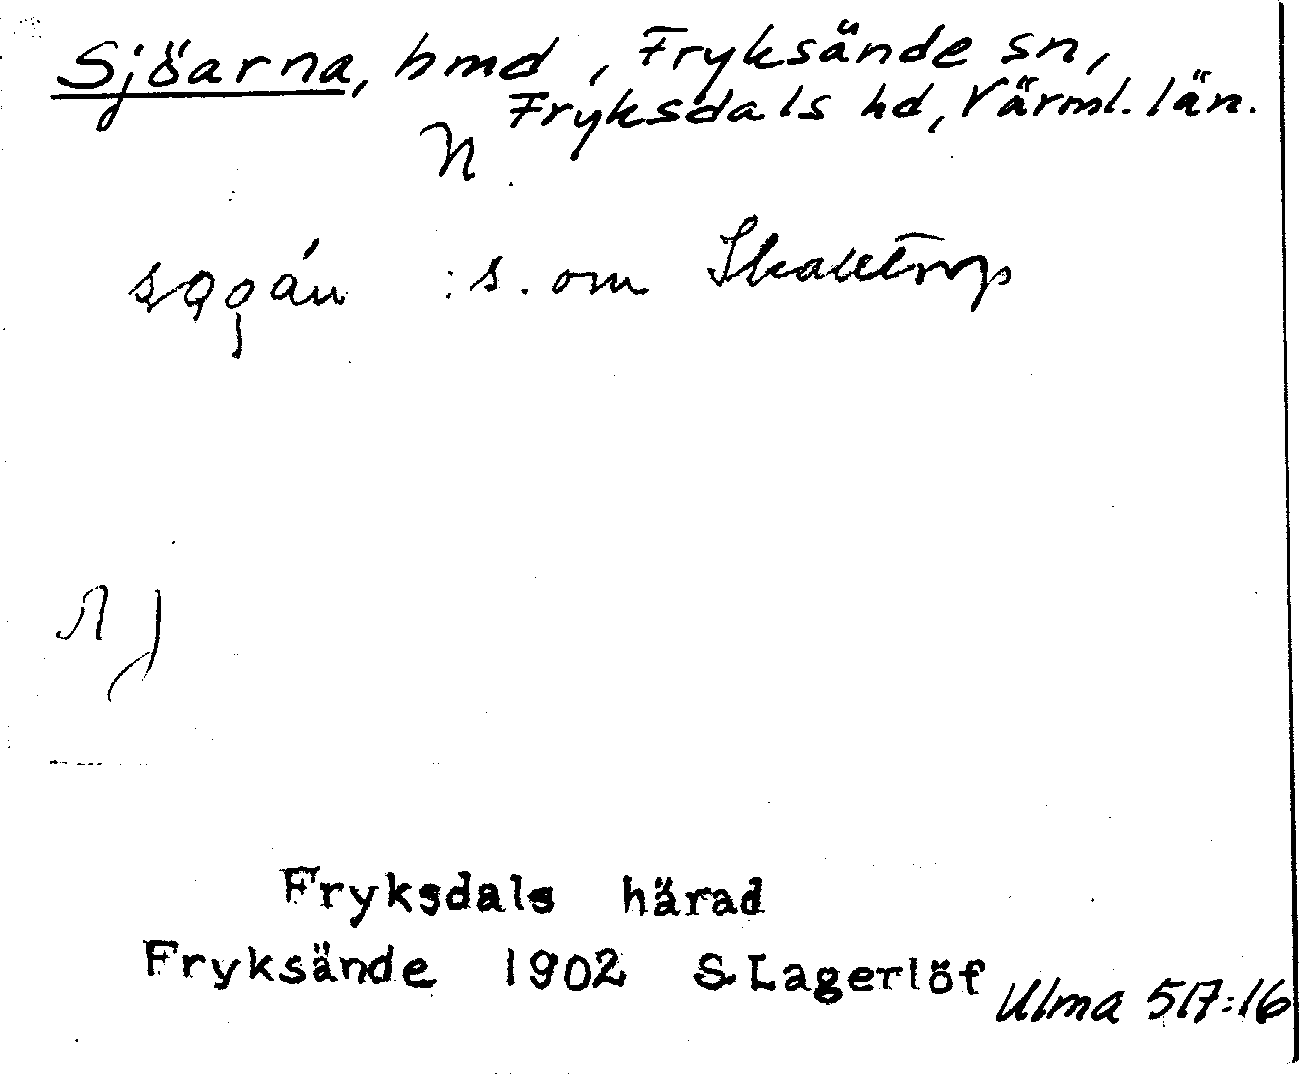 Sjöarna, hmd, Fryksände sn,
Fryksdals hd, Värml. län.
N
: s. om
Fryksdals härad
Fryksände 1902 S Lagerlöf
Ulma 517:16